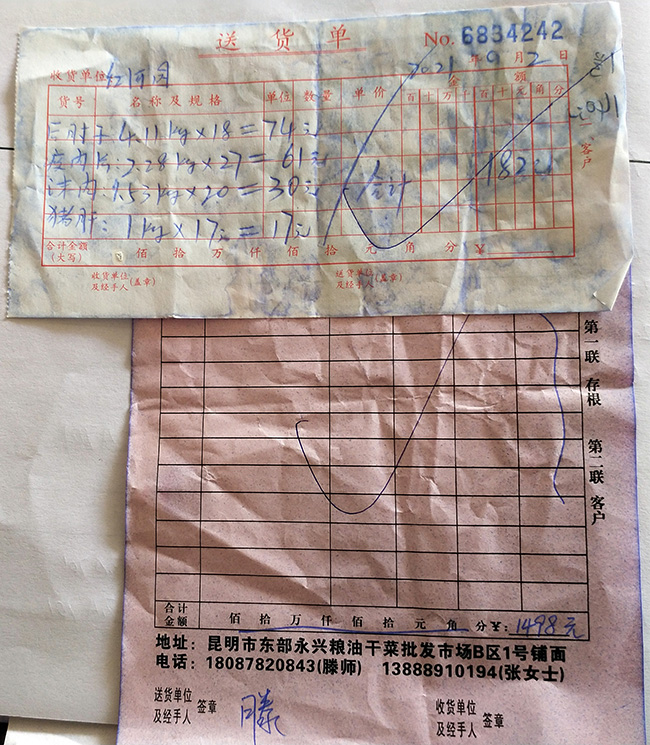 送货单 No. 6834242
收货单位 红河园 2021年9月2日
货号 名称及规格 单位 数量 单价 金额
百 十 万 千 百 十 元 角 分
4.11kg×18=74元
2.28kg×27=61元
1.53kg×20=30元
合计 182元
猪肝:1kg×17元=17元
客户
合计金额(大写) 佰 拾 万 仟 佰 拾 元 角 分 ¥
收货单位及经手人(盖章) 送货单位及经手人(盖章)
第一联 存根 第二联 客户
合计金额 佰 拾 万 仟 佰 拾 元 角 分 ¥:1498元
地址:昆明市东部永兴粮油干菜批发市场B区1号铺面
电话:18087820843(滕师) 13888910194(张女士)
送货单位及经手人 签章 滕 收货单位及经手人 签章